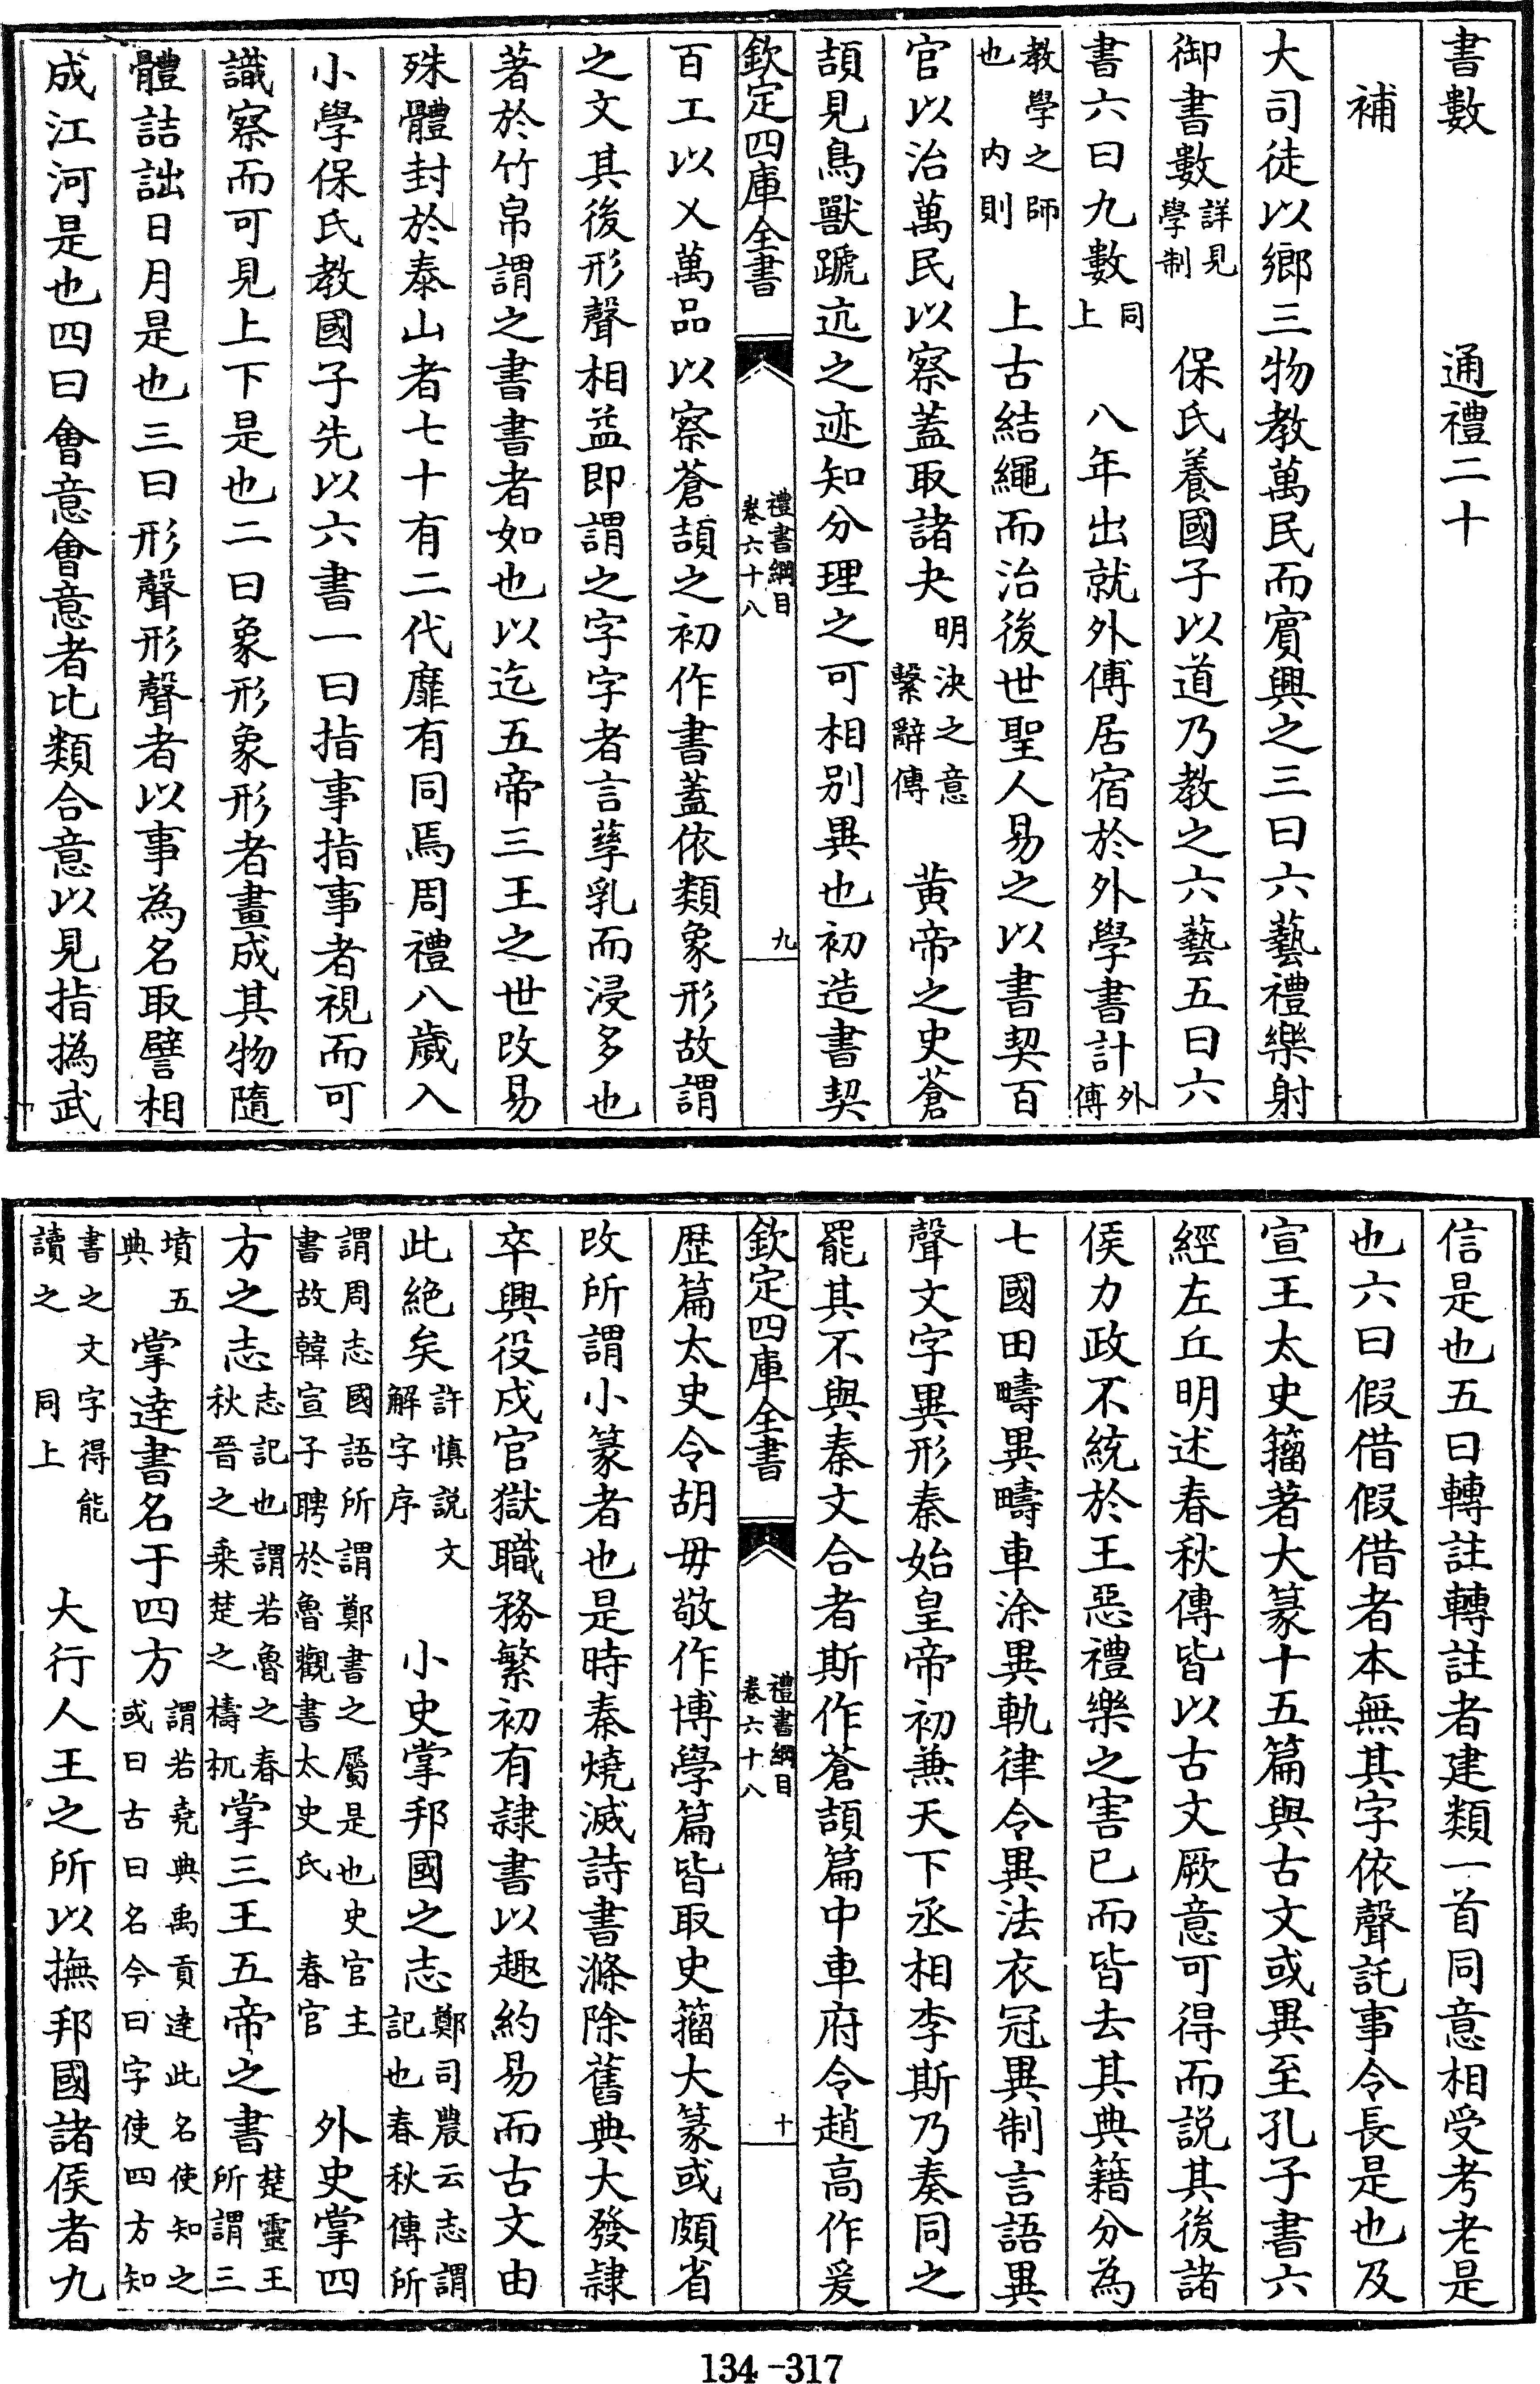 書數　　　　通禮二十
補
大司徒以鄉三物教萬民而賓興之三曰六藝禮樂射
御書數詳見學制　保氏養國子以道乃教之六藝五曰六
書六曰九數同上　八年出就外傅居宿於外學書計外傅
教學之師也内則　上古結繩而治後世聖人易之以書契百
官以治萬民以察蓋取諸夬明決之意繫辭傳　黄帝之史蒼
頡見鳥獸蹏迒之迹知分理之可相别異也初造書契
欽定四庫全書　禮書綱目卷六十八　九
百工以乂萬品以察蒼頡之初作書蓋依類象形故謂
之文其後形聲相益即謂之字字者言孳乳而浸多也
著於竹帛謂之書書者如也以迄五帝三王之世改易
殊體封於泰山者七十有二代靡有同焉周禮八歲入
小學保氏教國子先以六書一曰指事指事者視而可
識察而可見上下是也二曰象形象形者畫成其物隨
體詰詘日月是也三曰形聲形聲者以事為名取譬相
成江河是也四曰會意會意者比類合意以見指撝武
信是也五曰轉註轉註者建類一首同意相受考老是
也六曰假借假借者本無其字依聲託事令長是也及
宣王太史籀著大篆十五篇與古文或異至孔子書六
經左丘明述春秋傳皆以古文厥意可得而説其後諸
侯力政不統於王惡禮樂之害已而皆去其典籍分為
七國田疇異疇車涂異軌律令異法衣冠異制言語異
聲文字異形秦始皇帝初兼天下丞相李斯乃奏同之
罷其不與秦文合者斯作蒼頡篇中車府令趙高作爰
欽定四庫全書　禮書綱目卷六十八　十
歴篇太史令胡毋敬作博學篇皆取史籀大篆或頗省
改所謂小篆者也是時秦燒滅詩書滌除舊典大發隷
卒興役戍官獄職務繁初有隷書以趣約易而古文由
此絶矣許慎説文解字序　小史掌邦國之志鄭司農云志謂記也春秋傳所
謂周志國語所謂鄭書之屬是也史官主書故韓宣子聘於魯觀書太史氏　春官　外史掌四
方之志志記也謂若魯之春秋晉之乘楚之檮杌掌三王五帝之書楚靈王所謂三
墳五典掌達書名于四方謂若堯典禹貢達此名使知之或曰古曰名今曰字使四方知
書之文字得能讀之　同上　大行人王之所以撫邦國諸侯者九
134-317